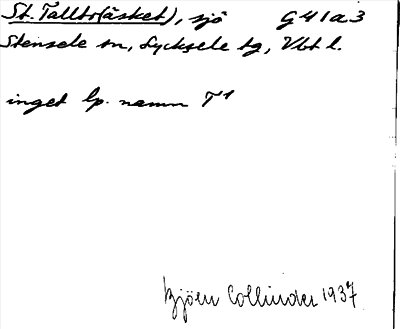 St. Talltr(äsket), sjö G41a3
Stensele sn, Lycksele tg, Vbt l.
inget lp. namn T¹
Björn Collinder 1937